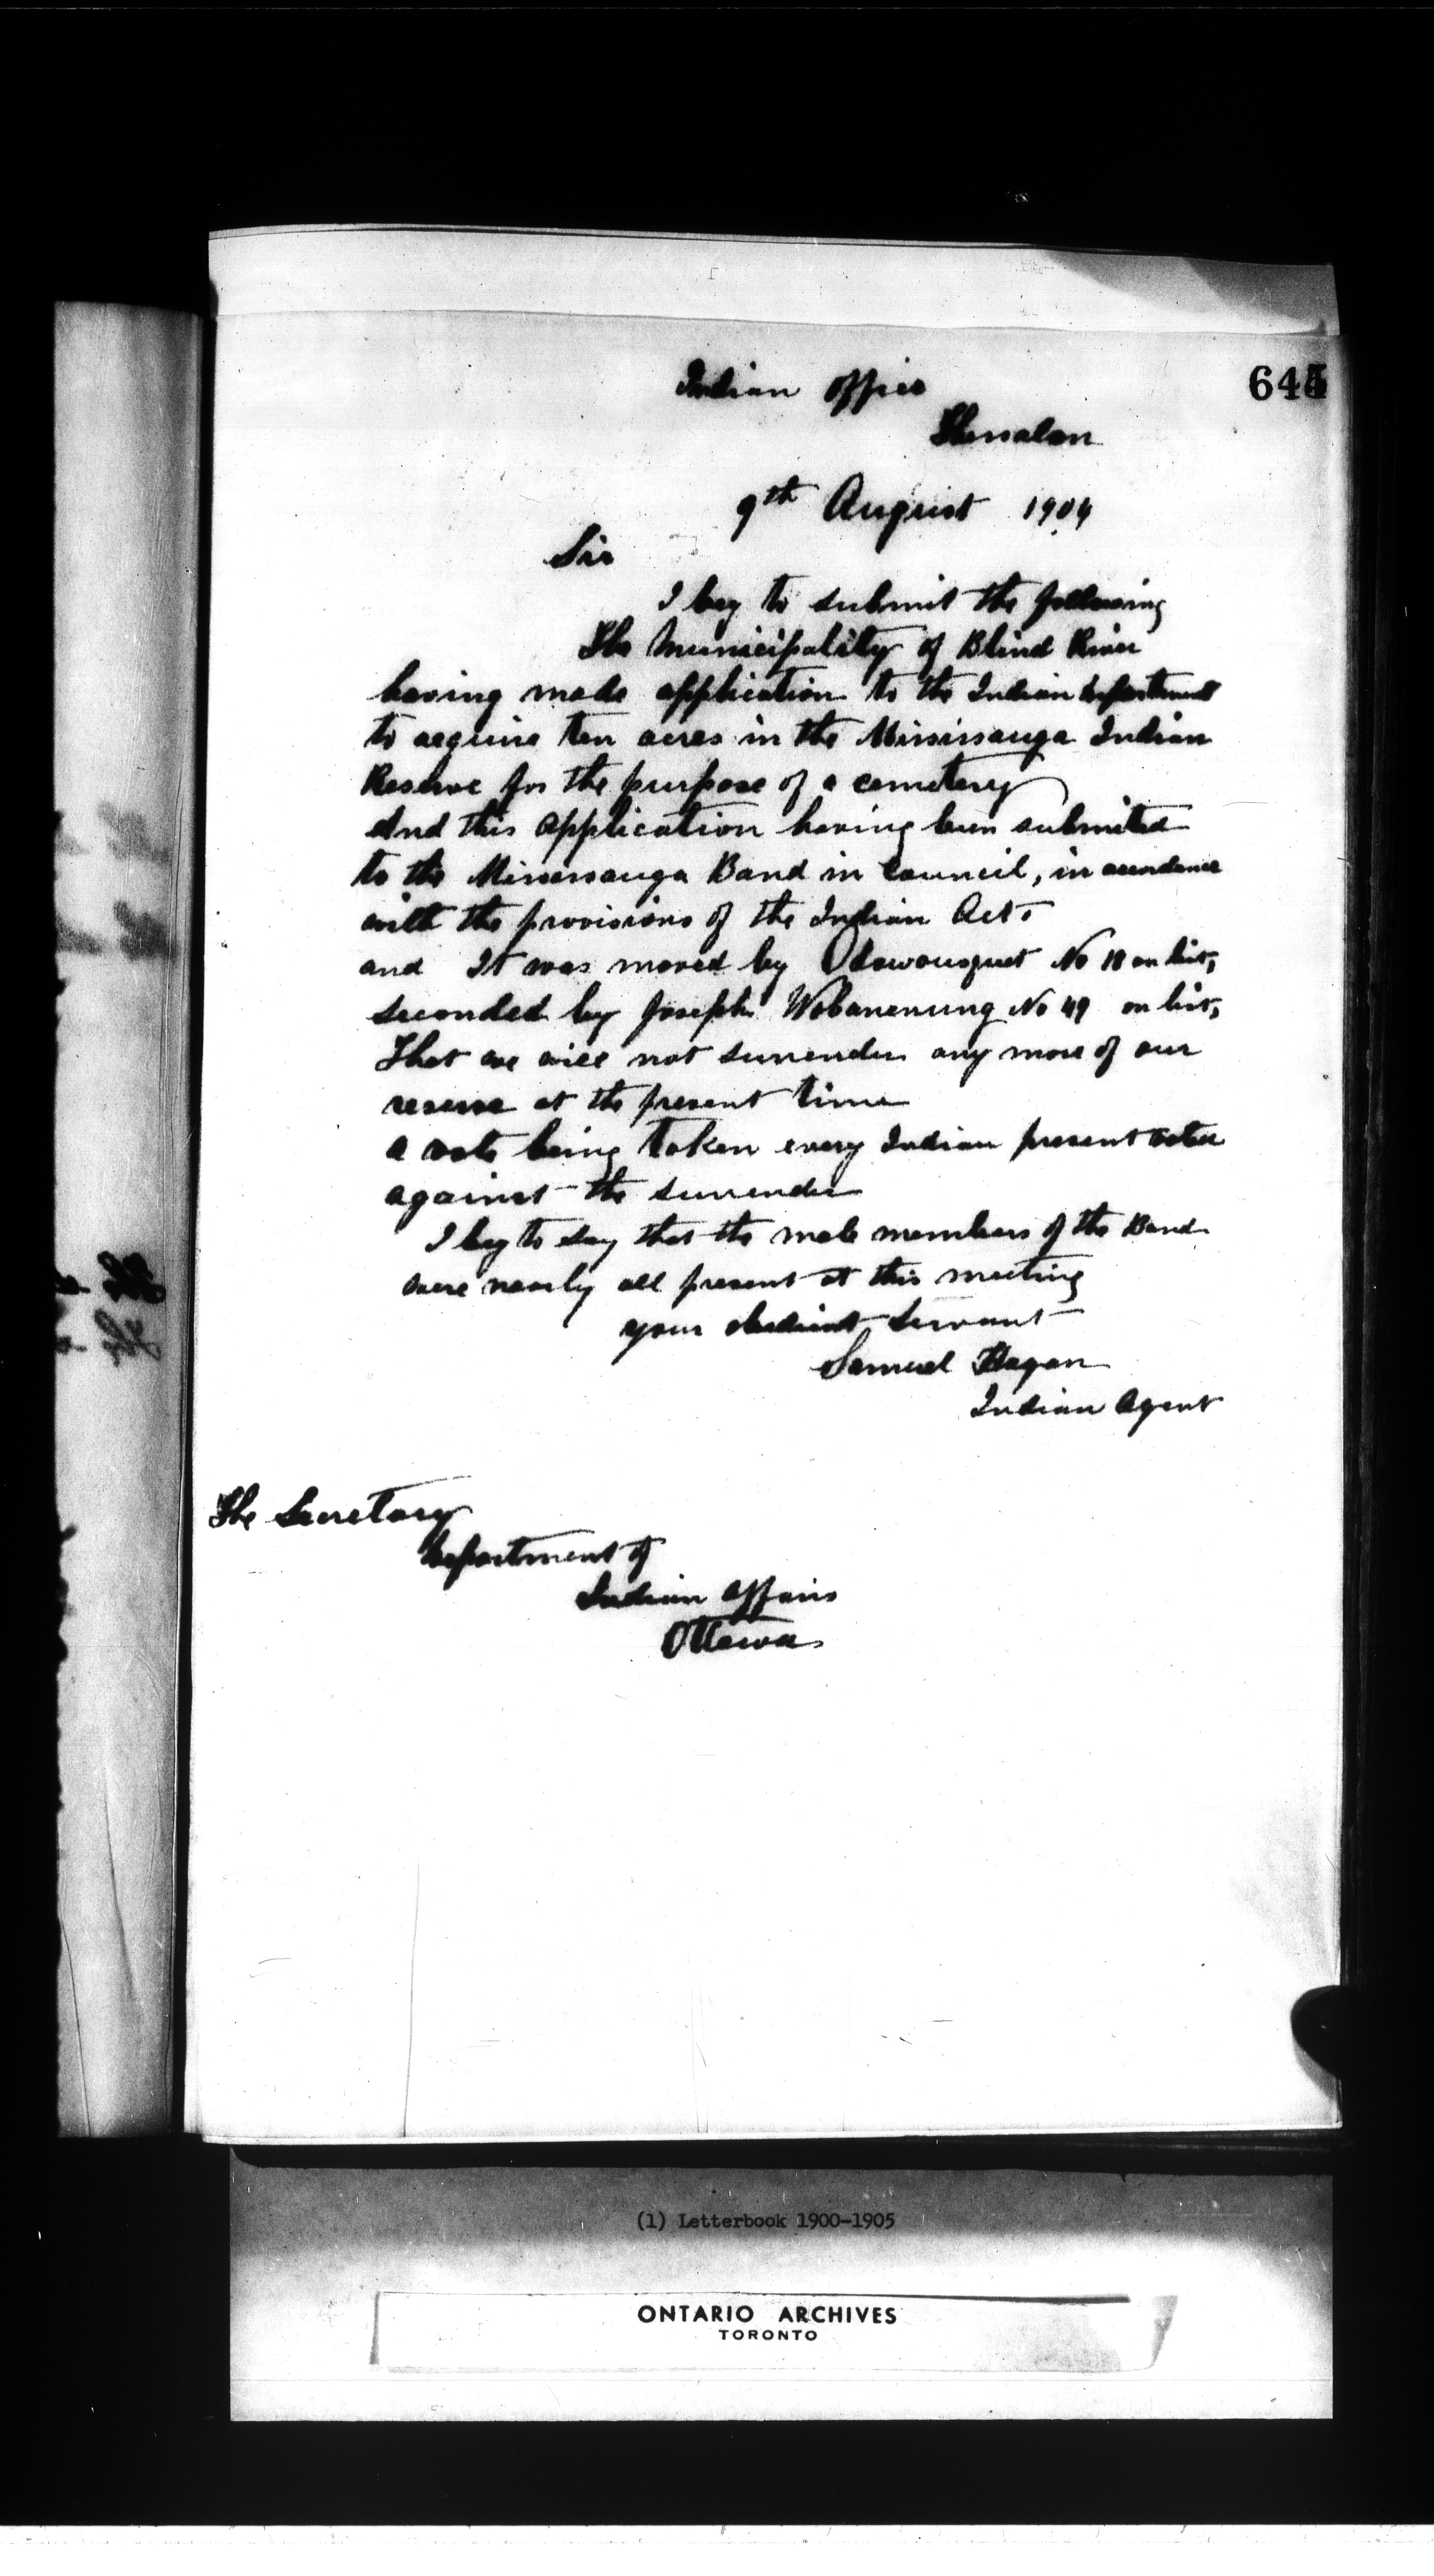 645
Indian Office
Thessalon
9th August 1904
Sir
I beg to submit the following
The Municipality of Blind River
having made application to the Indian Department
to acquire ten acres in the Mississauga Indian
Reserve for the purpose of a cemetery
And this application having been submitted
to the Mississauga Band in Council, in accordance
with the provisions of the Indian Act.
and It was moved by No 18 on list,
seconded by Joseph Wobanenung No 49 on list,
That we will not surrender any more of our
reserve at the present time
a vote being taken every Indian present voted
against the surrender
I beg to say that the male members of the Band
were nearly all present at this meeting
your obedient servant
Samuel Hagan
Indian Agent
The Secretary
Department of
Indian Affairs
Ottawa
(1) Letterbook 1900-1905
ONTARIO ARCHIVES
TORONTO